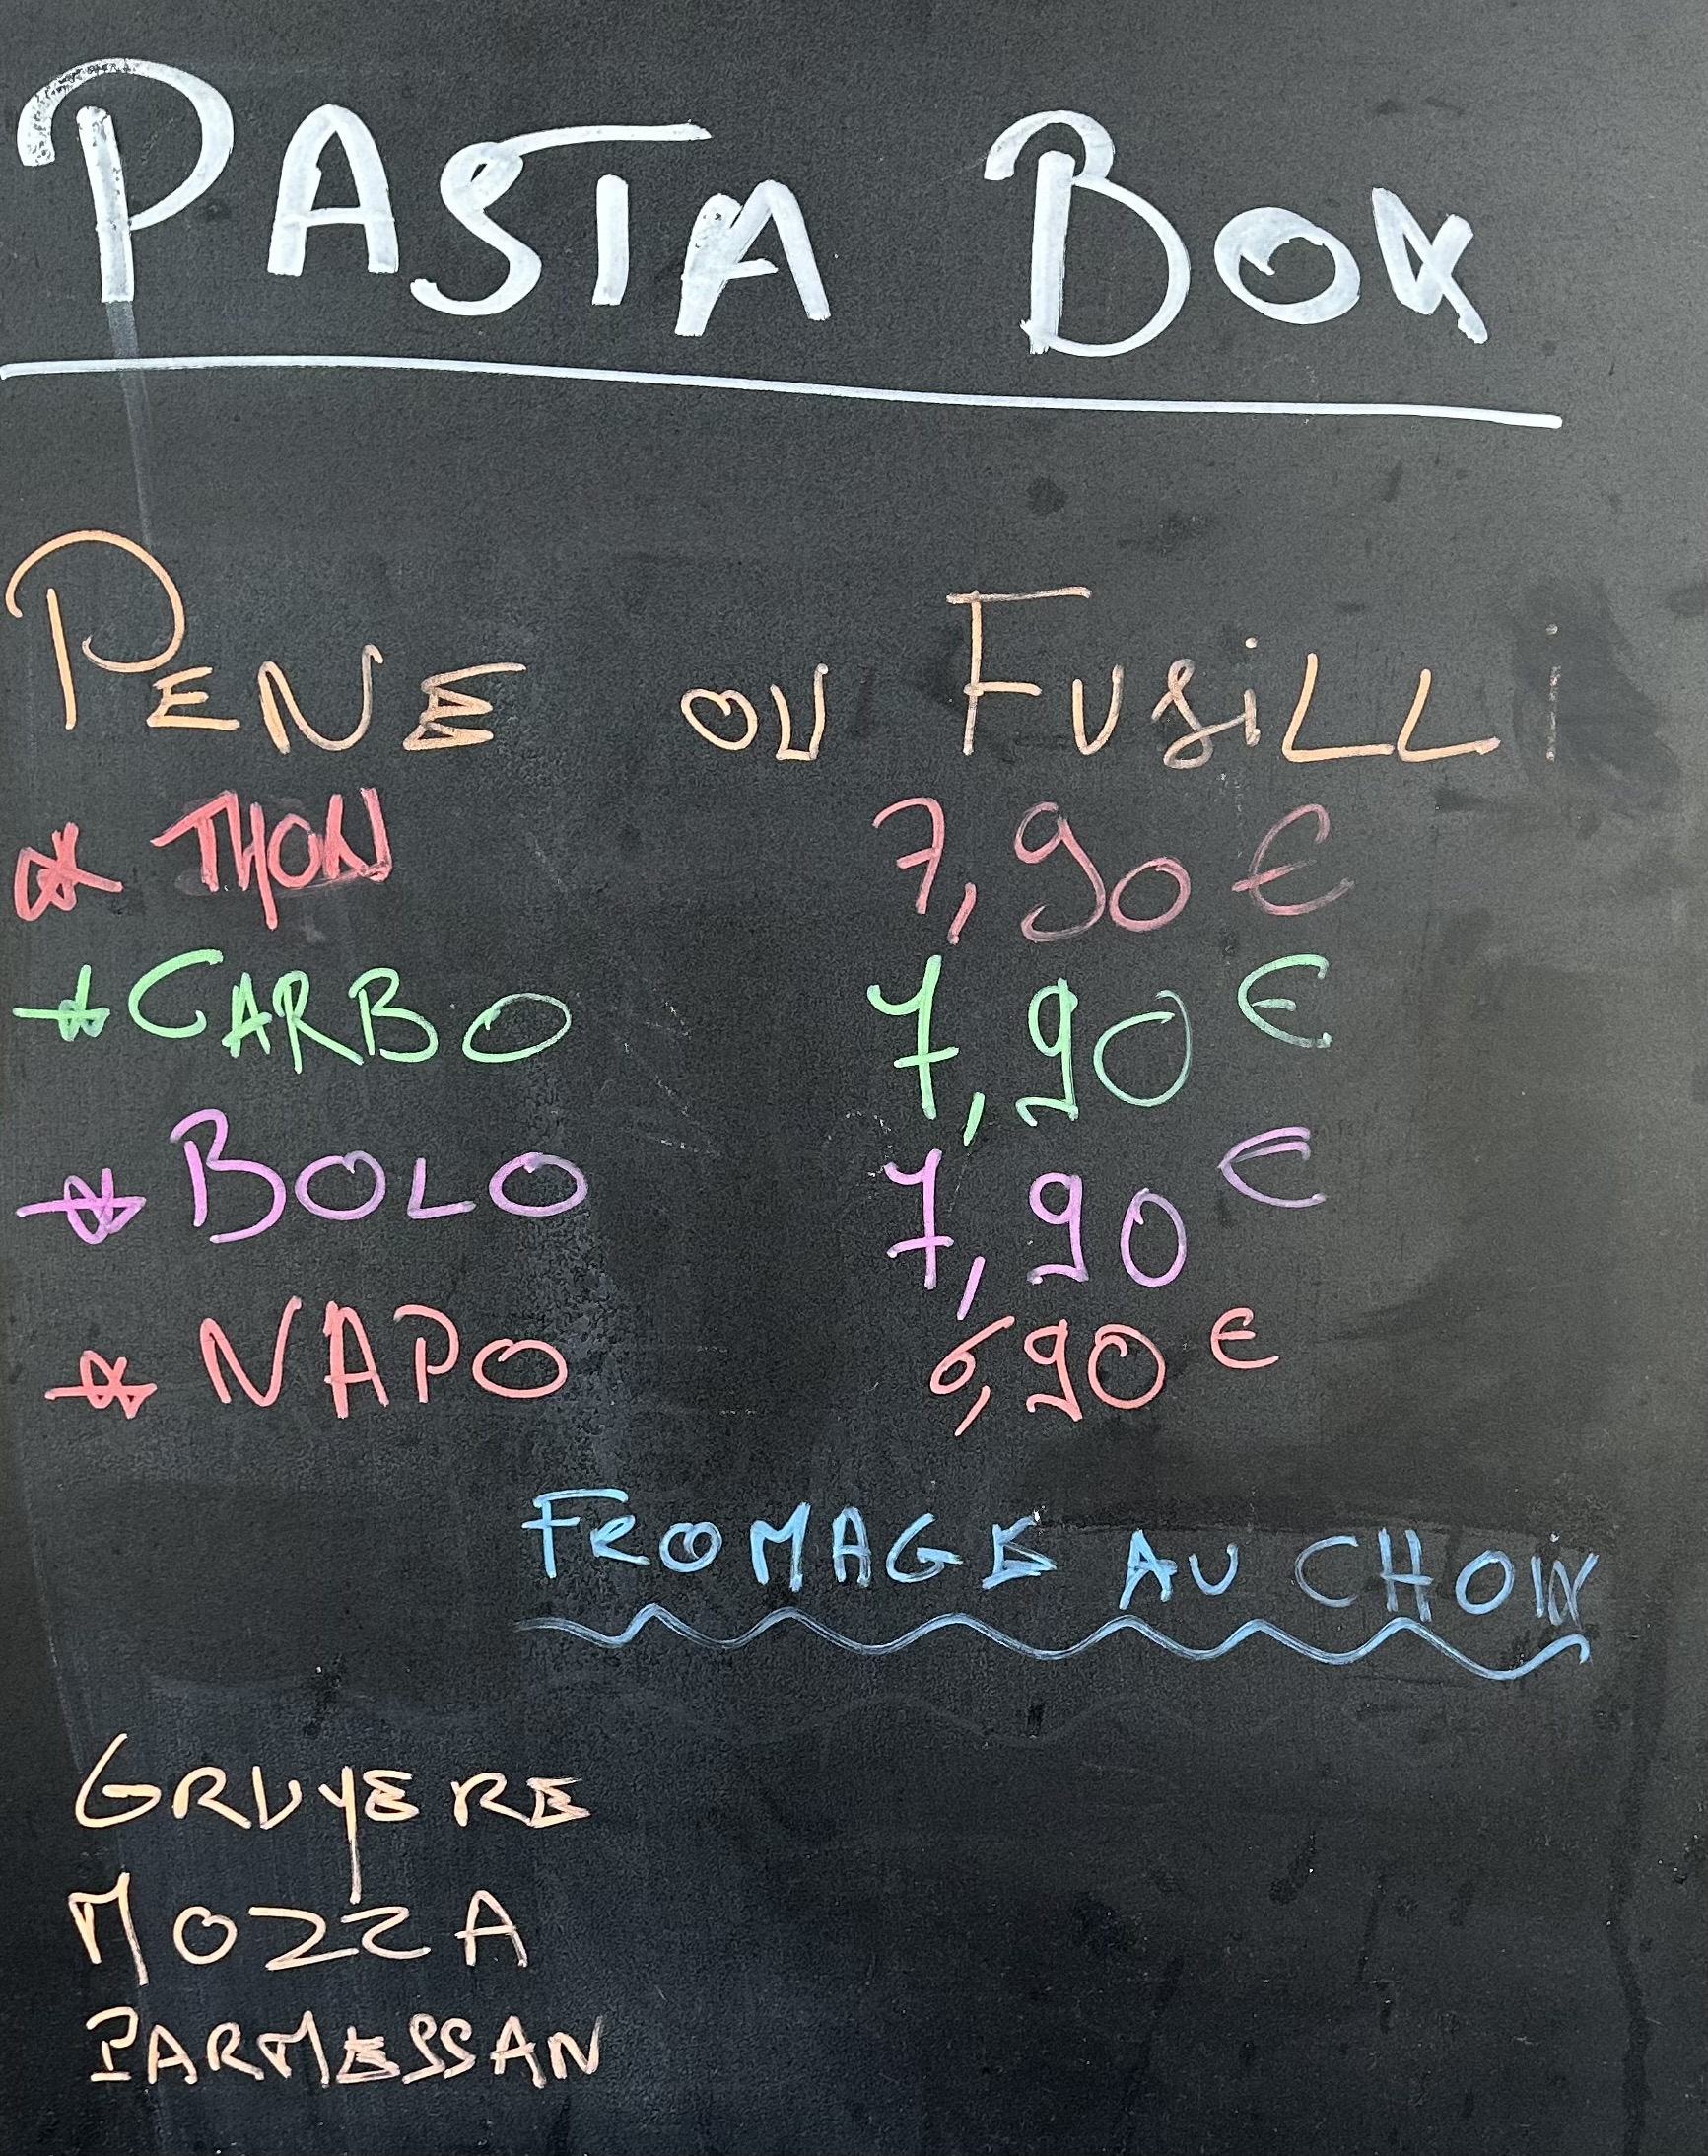 PASTA BOX
PENE OU FUSILLI
* THON 7,90 €
* CARBO 7,90 €
* BOLO 7,90 €
* NAPO 6,90 €
FROMAGE AU CHOIX
GRUYERE
MOZZA
PARMESSAN